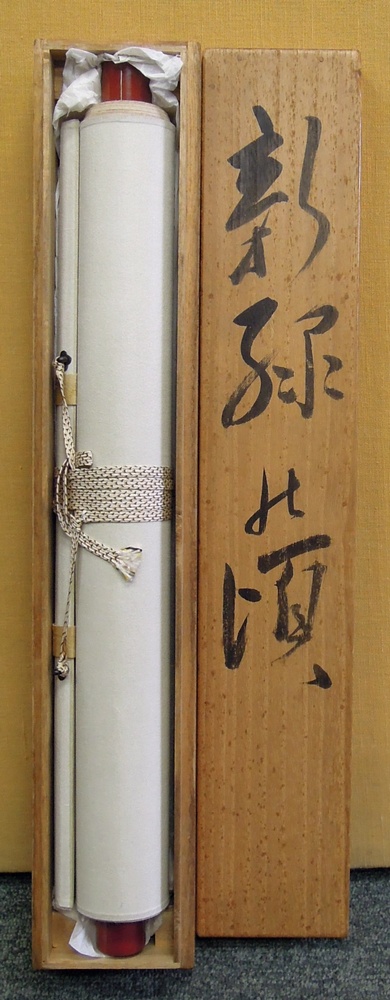 新緑の頃